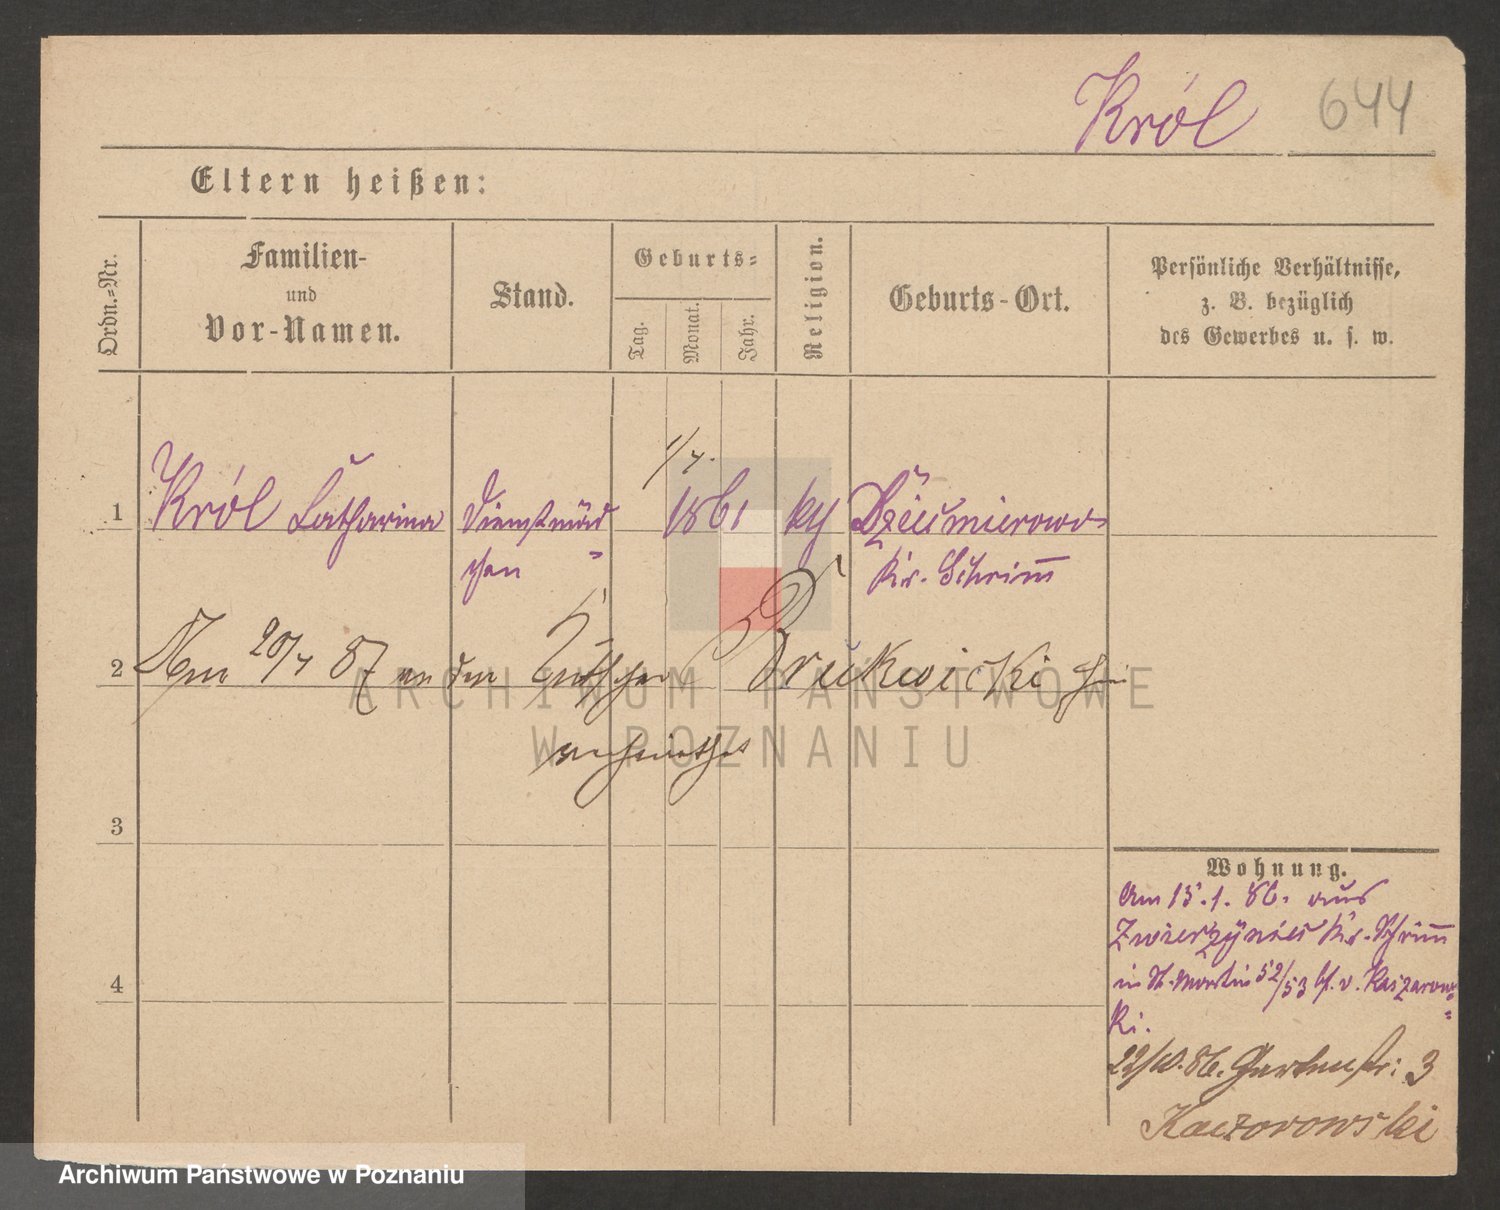 Król 644
Eltern heißen:
Ordn.-Nr.
Familien-
und
Vor-Namen.
Stand.
Geburts-
Tag.
Monat.
Jahr.
Religion.
Geburts-Ort.
Persönliche Verhältnisse,
z. B. bezüglich
des Gewerbes u. s. w.
1/4.
1 Król Catharina Dienstmäd 1861 kth
chen "
Kr. Schrimm
2 Am 20/4 87 an den hier
verheirathet
3
4
Wohnung.
Am 15.1.86. aus
Zwierzyniec Kr. Schrimm
in St. Martin 52/53 bf. v. Kaczarows-
ki.
22/10.86. Gartenstr: 3
Kaczorowski
ARCHIWUM PAŃSTWOWE
W POZNANIU
Archiwum Państwowe w Poznaniu